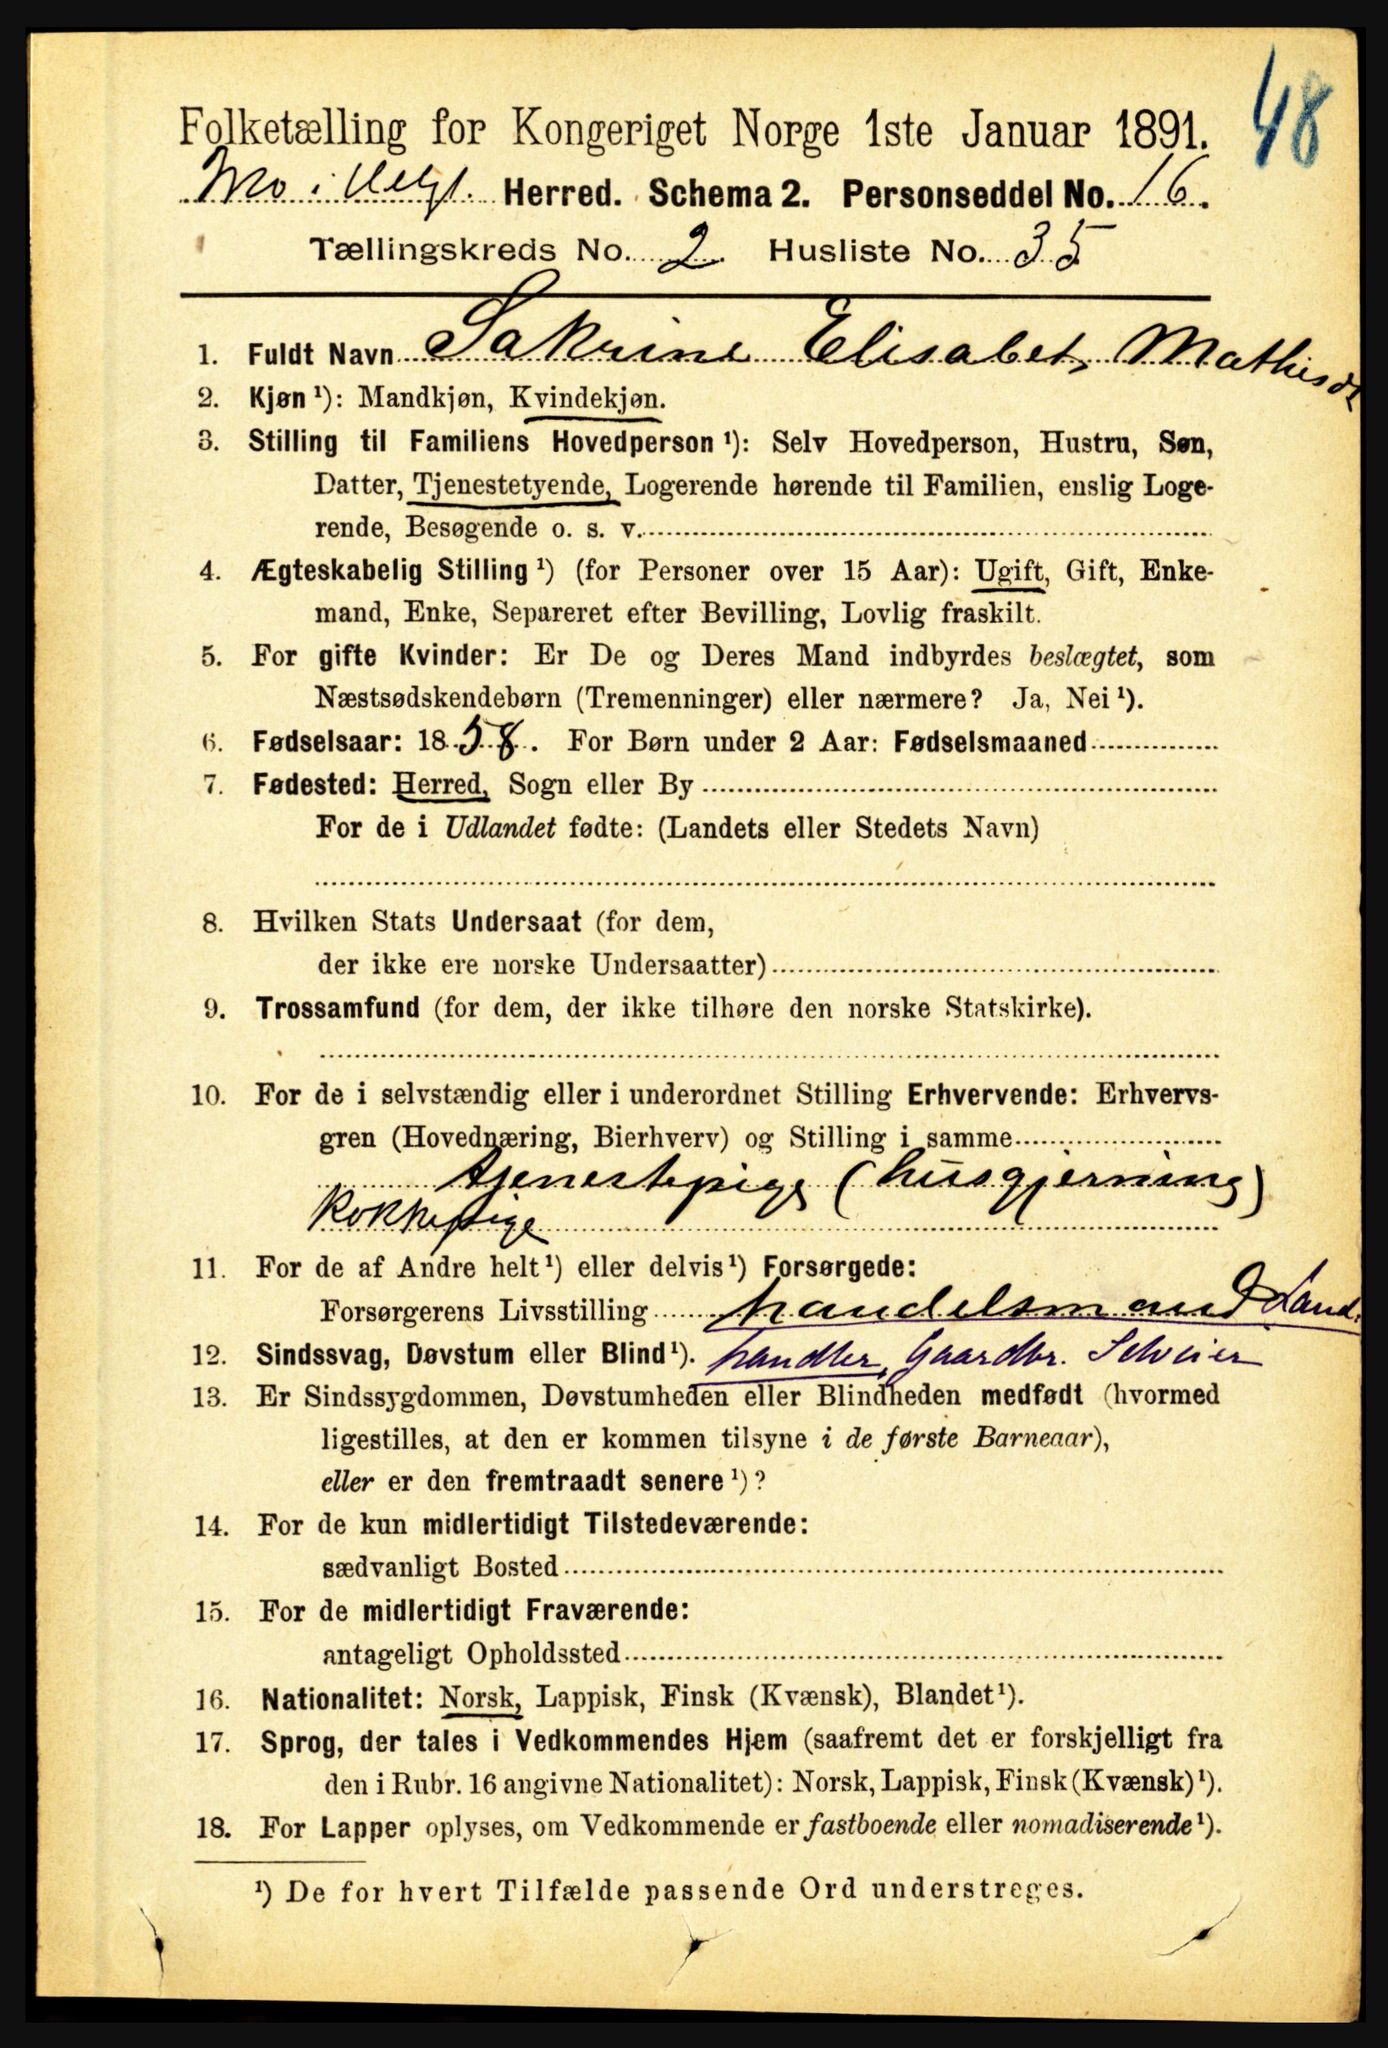 48
Folketælling for Kongeriget Norge 1ste Januar 1891.
Mo i Helgl. Herred. Schema 2. Personseddel No. 16.
Tællingskreds No. 2 Husliste No. 35
1. Fuldt Navn Sakrine Elisabet Mathisdt
2. Kjøn ¹): Mandkjøn, Kvindekjøn.
3. Stilling til Familiens Hovedperson ¹): Selv Hovedperson, Hustru, Søn,
Datter, Tjenestetyende, Logerende hørende til Familien, enslig Loge-
rende, Besøgende o. s. v.
4. Ægteskabelig Stilling ¹) (for Personer over 15 Aar): Ugift, Gift, Enke-
mand, Enke, Separeret efter Bevilling, Lovlig fraskilt.
5. For gifte Kvinder: Er De og Deres Mand indbyrdes beslægtet, som
Næstsødskendebørn (Tremenninger) eller nærmere? Ja, Nei ¹).
6. Fødselsaar: 1858. For Børn under 2 Aar: Fødselsmaaned
7. Fødested: Herred, Sogn eller By
For de i Udlandet fødte: (Landets eller Stedets Navn)
8. Hvilken Stats Undersaat (for dem,
der ikke ere norske Undersaatter)
9. Trossamfund (for dem, der ikke tilhøre den norske Statskirke).
10. For de i selvstændig eller i underordnet Stilling Erhvervende: Erhvervs-
gren (Hovednæring, Bierhverv) og Stilling i samme
tjenestepige (husgjerning)
Kokkepige
11. For de af Andre helt ¹) eller delvis ¹) Forsørgede:
Forsørgerens Livsstilling handelsmand Land-
12. Sindssvag, Døvstum eller Blind ¹). handler, Gaardbr. Selveier
13. Er Sindssygdommen, Døvstumheden eller Blindheden medfødt (hvormed
ligestilles, at den er kommen tilsyne i de første Barneaar),
eller er den fremtraadt senere ¹)?
14. For de kun midlertidigt Tilstedeværende:
sædvanligt Bosted
15. For de midlertidigt Fraværende:
antageligt Opholdssted
16. Nationalitet: Norsk, Lappisk, Finsk (Kvænsk), Blandet ¹).
17. Sprog, der tales i Vedkommendes Hjem (saafremt det er forskjelligt fra
den i Rubr. 16 angivne Nationalitet): Norsk, Lappisk, Finsk (Kvænsk) ¹).
18. For Lapper oplyses, om Vedkommende er fastboende eller nomadiserende ¹).
¹) De for hvert Tilfælde passende Ord understreges.